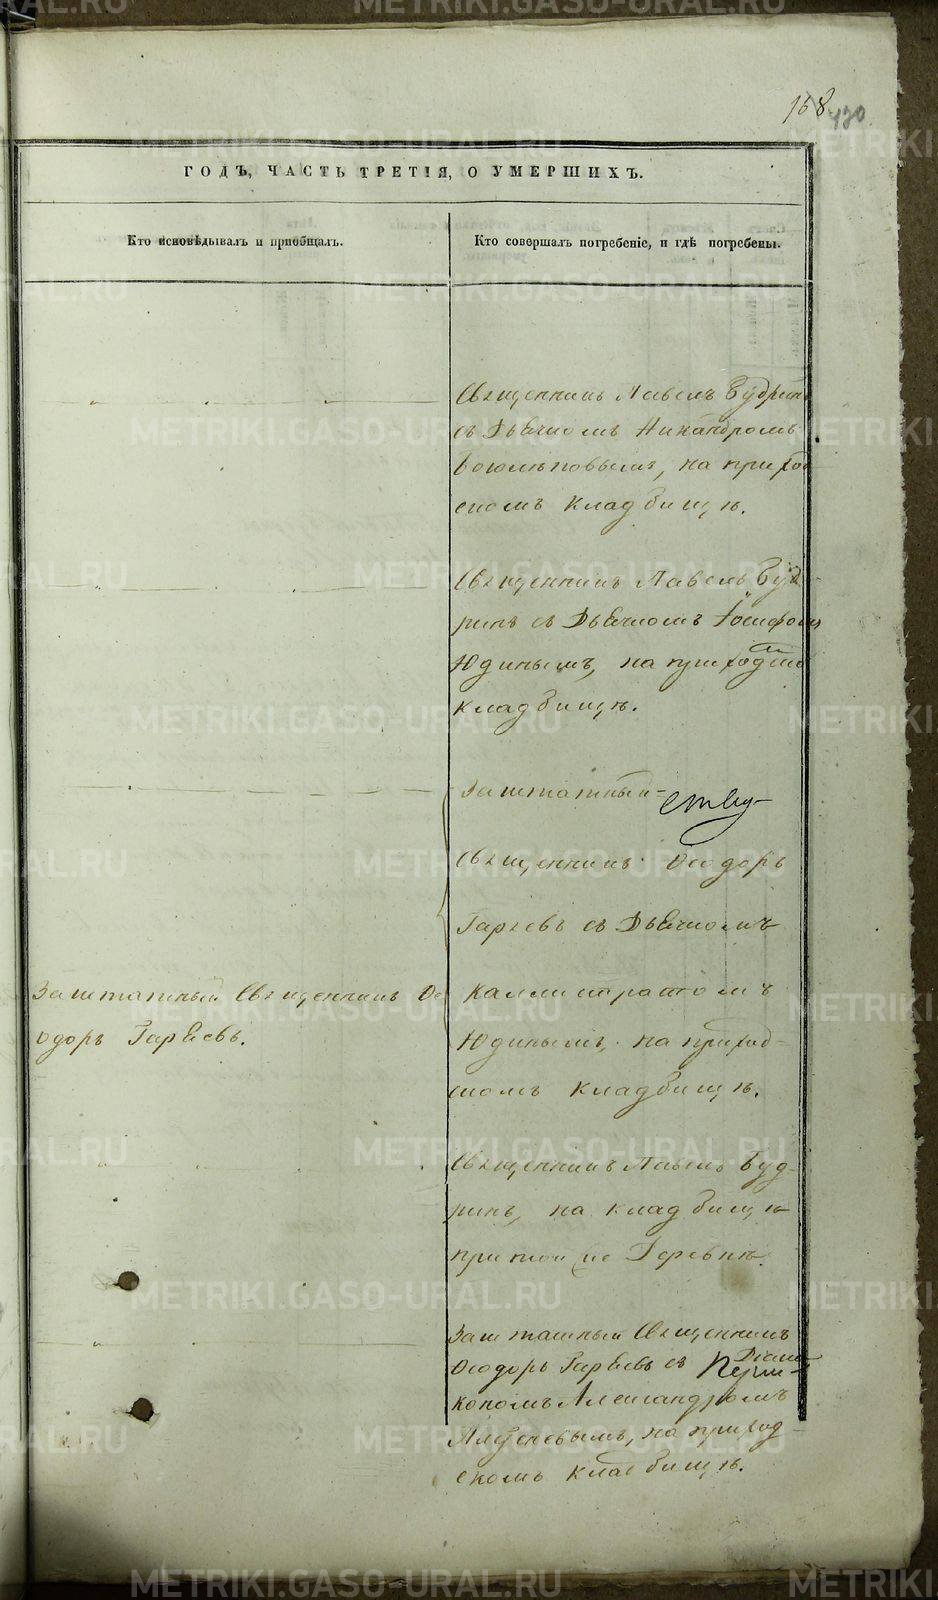 168
430
ГОДЪ, ЧАСТЬ ТРЕТІЯ, О УМЕРШИХЪ.
Кто исповѣдывалъ и пріобщалъ.
Кто совершалъ погребеніе, и гдѣ погребены.
Священникъ Павелъ Будринъ
съ Дьячкомъ Никандромъ
на приход
скомъ кладбищѣ.
Священникъ Павелъ Буд-
ринъ съ Дьячкомъ Іосифомъ
Юдинымъ, на приходском
кладбищѣ.
Заштатный
Священникъ Ѳеодоръ
Гаряевъ съ Дьячкомъ
Заштатный Священникъ Ѳе
Каллистратомъ
одоръ Гаряевъ.
Юдинымъ, на приход-
скомъ кладбищѣ.
Священникъ Павелъ Буд-
ринъ, на кладбищѣ
при той же Деревнѣ.
Заштатный Священникъ
Ѳеодоръ Гаряевъ съ Діа
кономъ Александромъ
на приход-
скомъ кладбищѣ.
METRIKI.GASO-URAL.RU